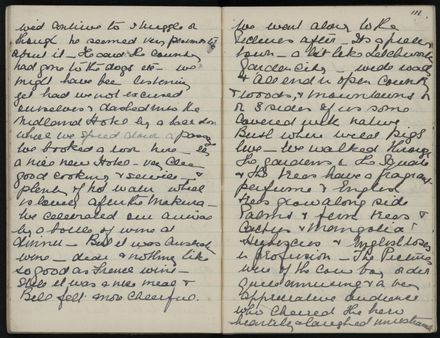 and continue to struggle on
though he seemed very pessimistic
about it - He said the country
had gone to the dogs etc - we
might have been listening
yet had we not excused
ourselves & dashed into the
Midland Hotel by a back door
where we speed down a passage
we booked a room here - It's
a nice new Hotel - very clean
good cooking & service - &
plenty of hot water which
is lovely after the Makena -
We celebrated our arrival
by a bottle of wine at
dinner - But it was Austral
wine - dear & nothing like
so good as French wine -
Still it was a nice meal &
Bell felt more cheerful.
111.
We went along to the
pictures after - It's a pretty
town - a bit like Letchworth
Garden City - wide roads
& all end in open country
& woods, & mountains on
2 or 3 sides of us some
covered with native
Bush where wild pigs
live - We walked through
the gardens & the Squares
& the trees have a fragrant
perfume & English
trees grow along side
Palms & fern trees &
Cactus & magnolia
Hibiscus & English roses
in profusion - The Pictures
were of the cow boy order
quite amusing & a very
appreciative audience
who cheered the hero
heartily & laughed